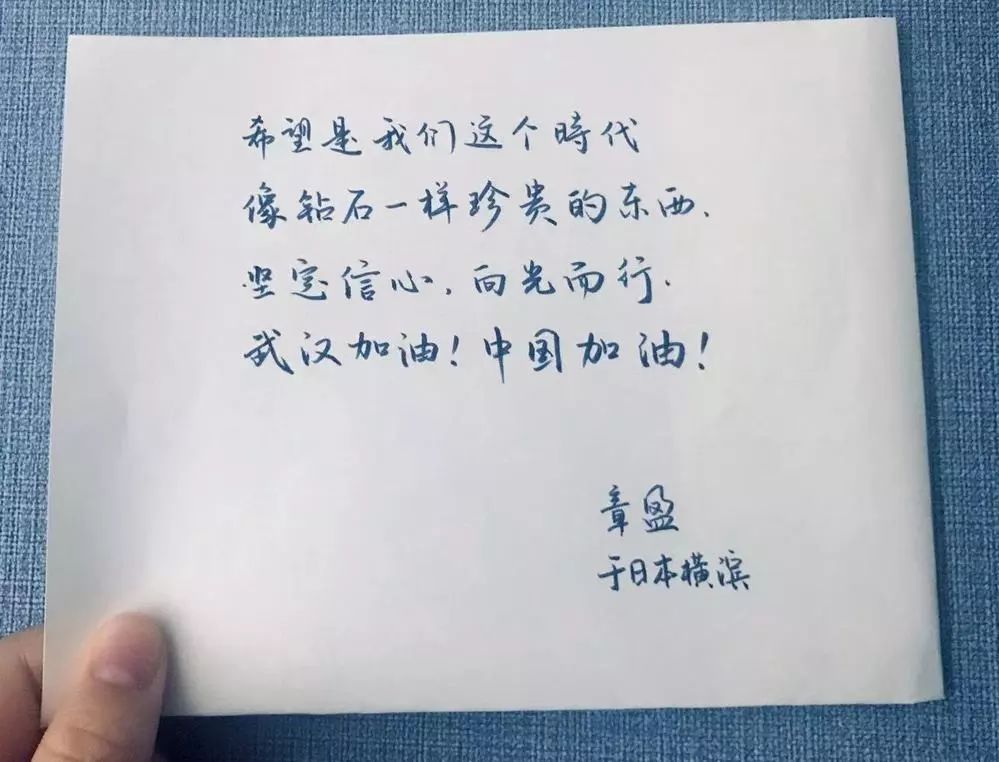 希望是我们这个時代
像钻石一样珍贵的东西.
坚定信心,向光而行.
武汉加油!中国加油!
章盈
于日本横滨